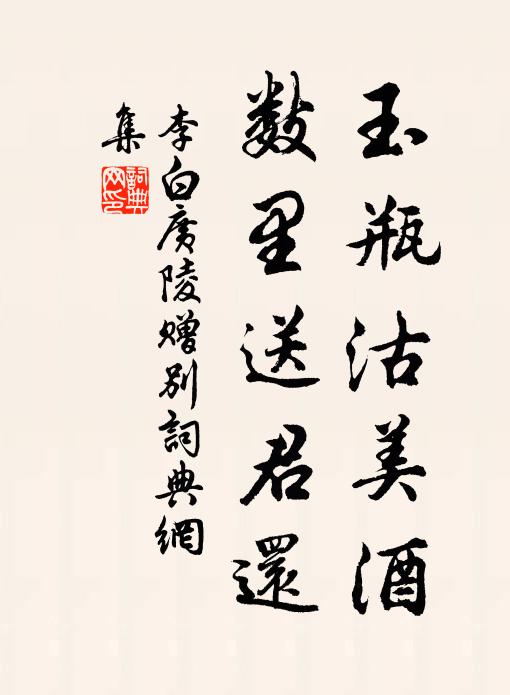 玉瓶沽美酒
數里送君還
李白廣陵贈別詞典網
集
詞典網印